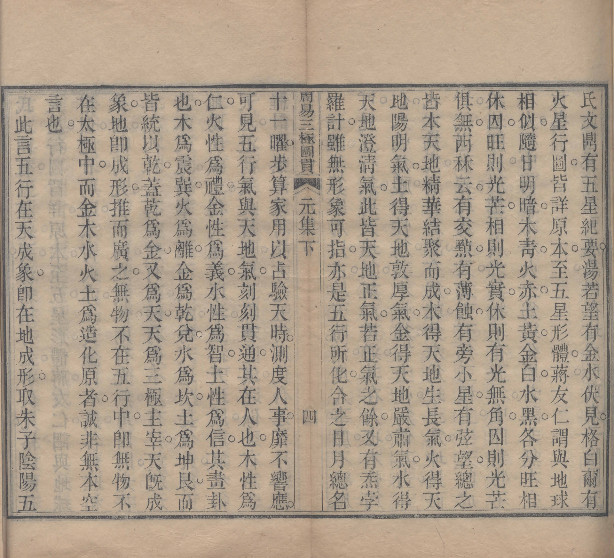 氏文鼎有五星紀要湯若望有金水伏見格白爾有
火星行圖皆詳原本至五星形體蔣友仁謂與地球
相似隨甘明暗木青火赤土黃金白水黑各分旺相
休囚旺則光芒相則光實休則有光無角囚則光芒
俱無西秝云有交點有薄蝕有旁小星有弦望總之
皆本天地精華結聚而成木得天地生長氣火得天
地陽明氣土得天地敦厚氣金得天地嚴肅氣水得
天地澄清氣此皆天地正氣若正氣之餘又有炁孛
羅計雖無形象可指亦是五行所化合之日月總名
周易三極圖貫
元集下
四
十一曜步算家用以占驗天時測度人事靡不響應
可見五行氣與天地氣刻刻貫通其在人也木性爲
仁火性爲禮金性爲義水性爲智土性爲信其畫卦
也木爲震巽火爲離金爲乾兌水爲坎土爲坤艮而
皆統以乾蓋乾爲金又爲天天爲三極主宰天旣成
象地卽成形推而廣之無物不在五行中卽無物不
在太極中而金木水火土爲造化原者誠非無本空
言也
此言五行在天成象卽在地成形取朱子陰陽五